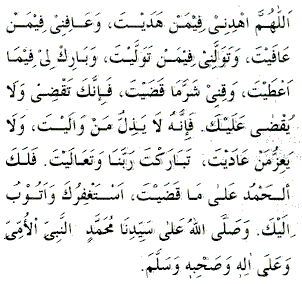 اَللّٰهُمَّ اهْدِنِيْ فِيْمَنْ هَدَيْتَ، وَعَافِنِيْ فِيْمَنْ
عَافَيْتَ، وَتَوَلَّنِيْ فِيْمَنْ تَوَلَّيْتَ، وَبَارِكْ لِيْ فِيْمَا
اَعْطَيْتَ، وَقِنِيْ شَرَّمَا قَضَيْتَ، فَإِنَّكَ تَقْضِيْ وَلَا
يُقْضٰى عَلَيْكَ. فَإِنَّهُ لَا يَذِلُّ مَنْ وَالَيْتَ، وَلَا
يَعِزُّمَنْ عَادَيْتَ، تَبَارَكْتَ رَبَّنَا وَتَعَالَيْتَ. فَلَكَ
الْحَمْدُ عَلٰى مَا قَضَيْتَ، اَسْتَغْفِرُكَ وَاَتُوْبُ
اِلَيْكَ. وَصَلَّى اللهُ عَلٰى سَيِّدِنَا مُحَمَّدٍ النَّبِيِّ الْأُمِّيِّ
وَعَلٰى اٰلِهٖ وَصَحْبِهٖ وَسَلَّمَ.